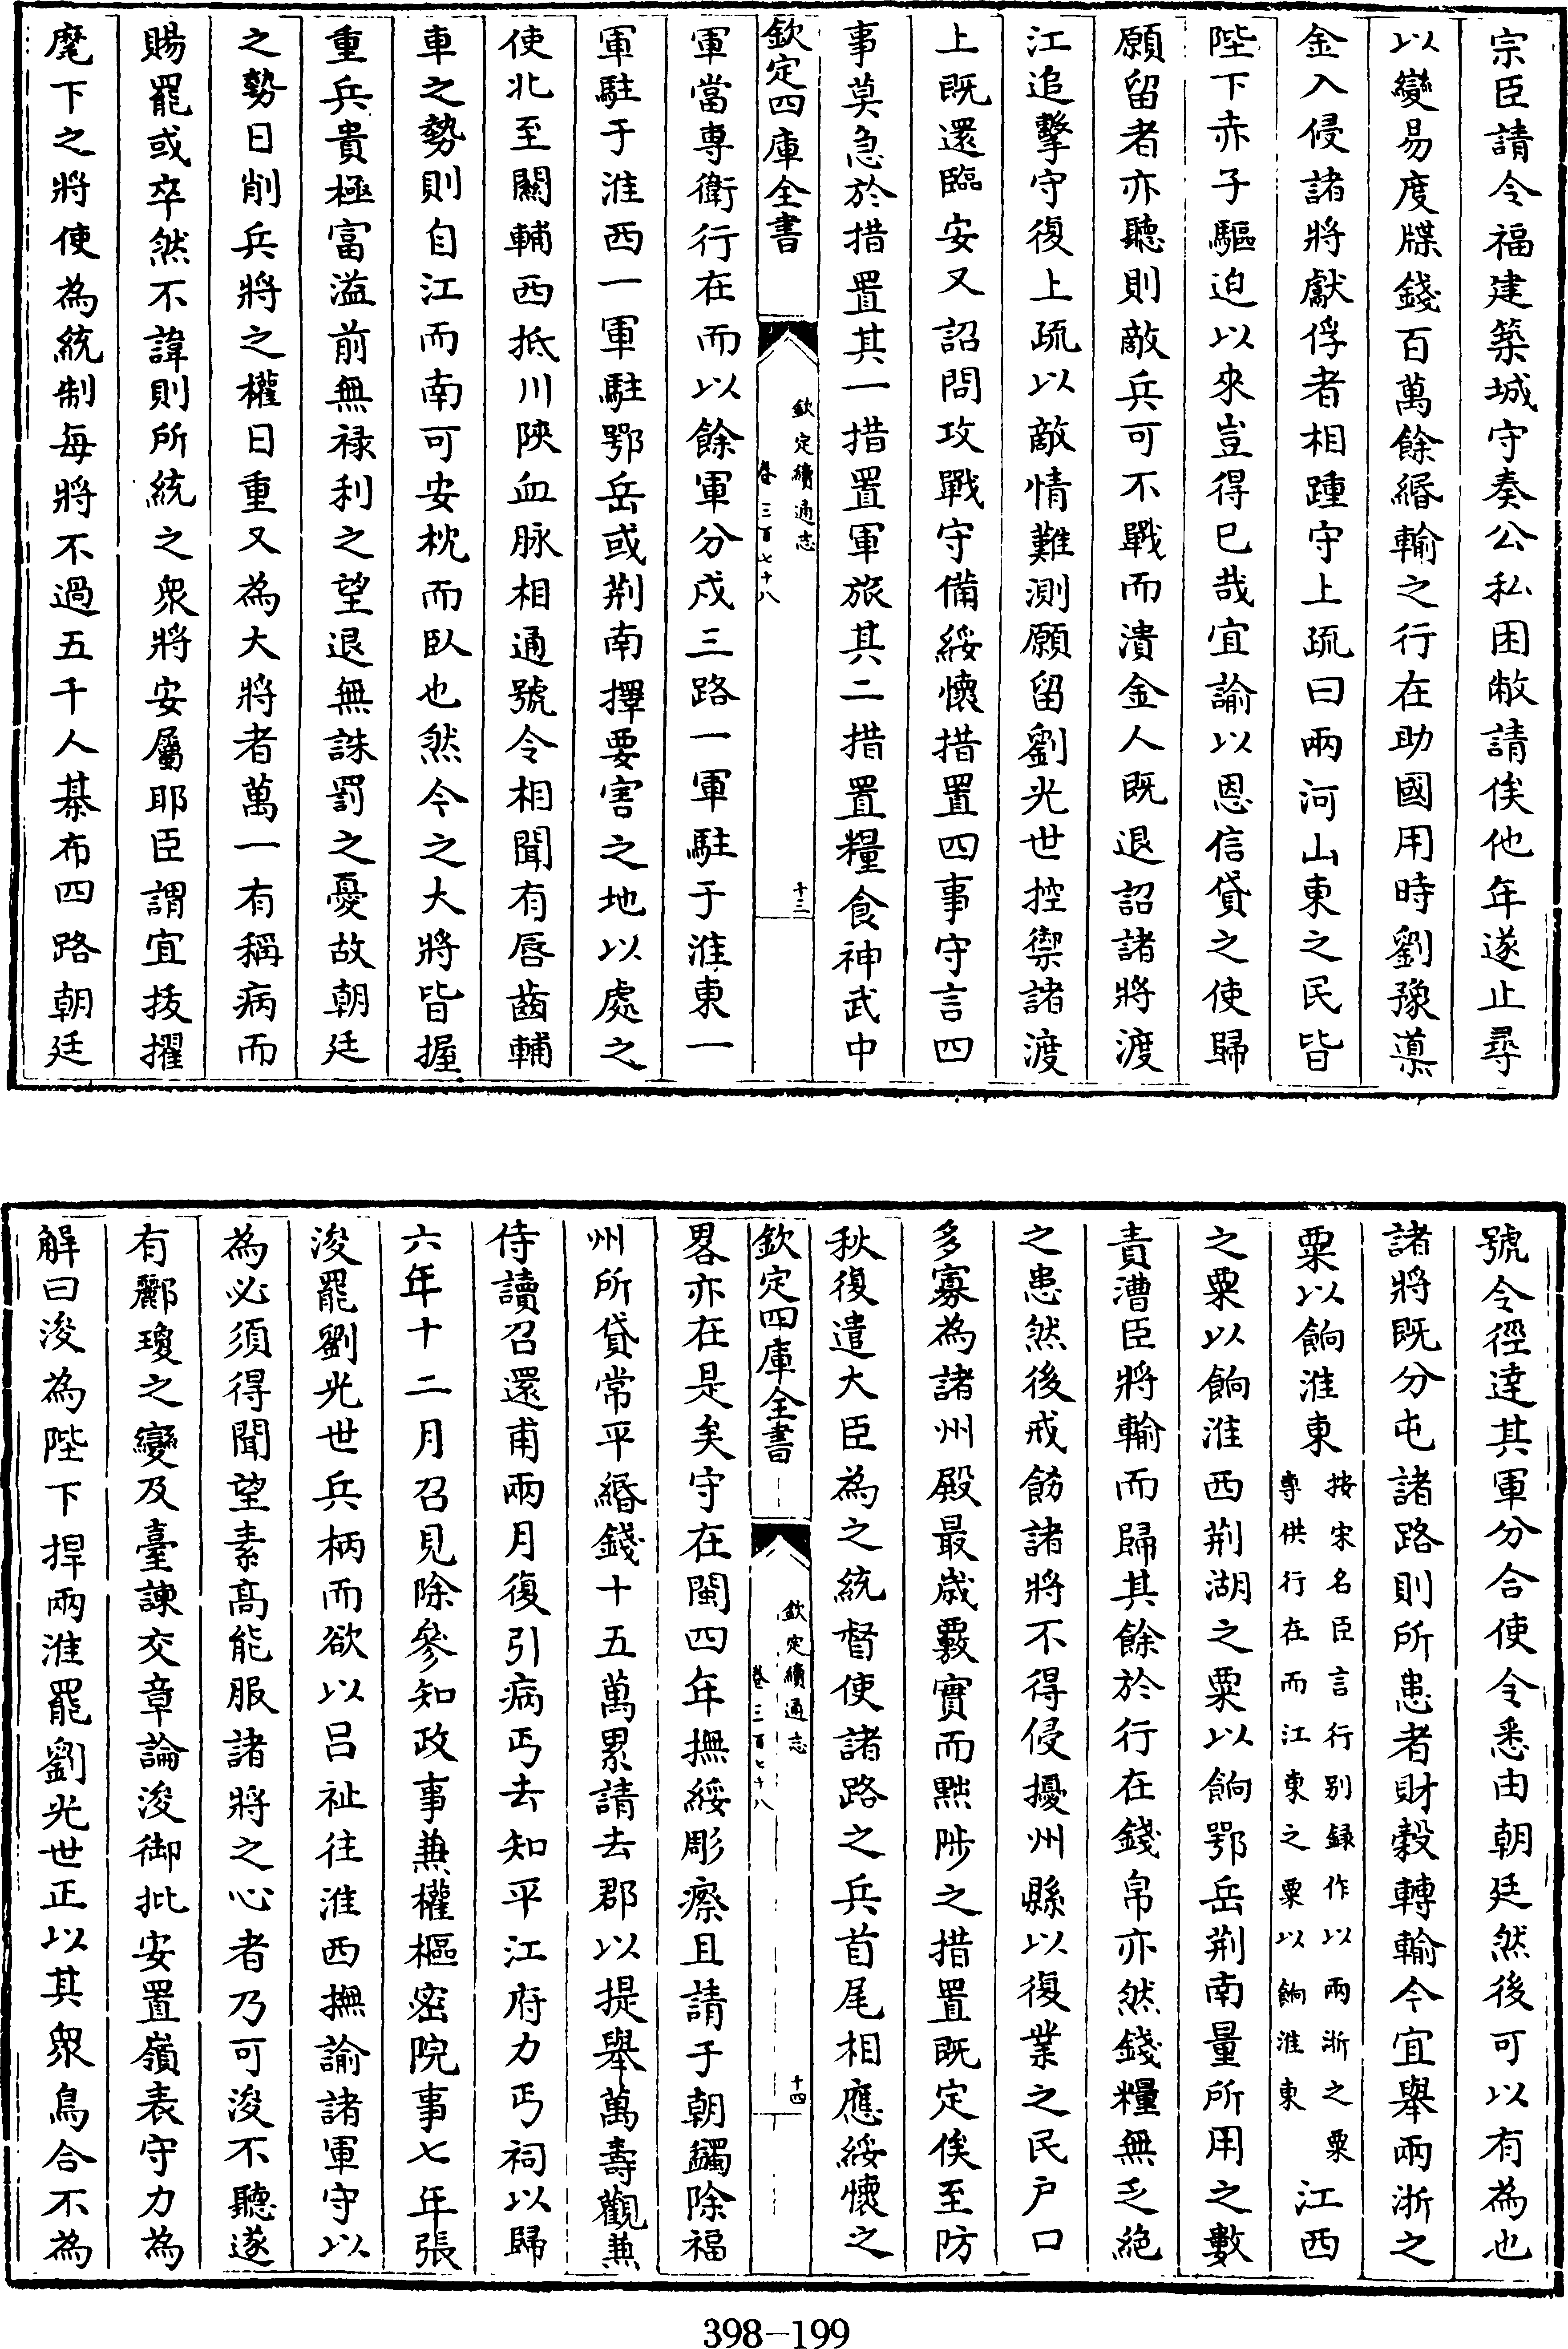 宗臣請令福建築城守奏公私困敝請俟他年遂止尋
以變易度牒錢百萬餘緡輸之行在助國用時劉豫𨗳
金入侵諸將獻俘者相踵守上疏曰兩河山東之民皆
陛下赤子驅迫以來豈得已哉宜諭以恩信貸之使歸
願留者亦聽則敵兵可不戰而潰金人既退詔諸將渡
江追擊守復上疏以敵情難測願留劉光世控禦諸渡
上既還臨安又詔問攻戰守備綏懷措置四事守言四
事莫急於措置其一措置軍旅其二措置糧食神武中
欽定四庫全書
欽定續通志
卷三百七十八
十三
軍當專衛行在而以餘軍分戍三路一軍駐于淮東一
軍駐于淮西一軍駐鄂岳或荆南擇要害之地以處之
使北至關輔西抵川陝血脉相通號令相聞有唇齒輔
車之勢則自江而南可安枕而臥也然今之大將皆握
重兵貴極富溢前無禄利之望退無誅罰之憂故朝廷
之勢日削兵將之權日重又為大將者萬一有稱病而
賜罷或卒然不諱則所統之衆將安屬耶臣謂宜拔擢
麾下之將使為統制每將不過五千人棊布四路朝廷
號令徑達其軍分合使令悉由朝廷然後可以有為也
諸將既分屯諸路則所患者財穀轉輸今宜舉兩浙之
粟以餉淮東按宋名臣言行别録作以兩浙之粟專供行在而江東之粟以餉淮東江西
之粟以餉淮西荆湖之粟以餉鄂岳荆南量所用之數
責漕臣將輸而歸其餘於行在錢帛亦然錢糧無乏絶
之患然後戒飭諸將不得侵擾州縣以復業之民户口
多寡為諸州殿最歲覈實而黜陟之措置既定俟至防
秋復遣大臣為之統督使諸路之兵首尾相應綏懷之
欽定四庫全書
欽定續通志
卷三百七十八
十四
畧亦在是矣守在閩四年撫綏彫瘵且請于朝蠲除福
州所貸常平緡錢十五萬累請去郡以提舉萬壽觀兼
侍讀召還甫兩月復引病丐去知平江府力丐祠以歸
六年十二月召見除參知政事兼權樞密院事七年張
浚罷劉光世兵柄而欲以吕祉往淮西撫諭諸軍守以
為必須得聞望素髙能服諸將之心者乃可浚不聽遂
有酈瓊之變及臺諫交章論浚御批安置嶺表守力為
解曰浚為陛下捍兩淮罷劉光世正以其衆烏合不為
398-199